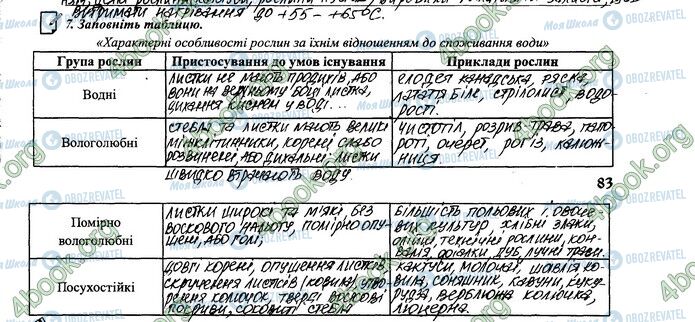 витримати нагрівання до +55 - +65°С.
7. Заповніть таблицю.
«Характерні особливості рослин за їхнім відношенням до споживання води»
Група рослин
Пристосування до умов існування
Приклади рослин
Водні
листки не мають продихів, або
вони на верхньому боці листка,
дихання киснем у воді...
елодея канадська, ряска,
латаття біле, стрілолист, водо-
рості.
Вологолюбні
стебла та листки мають великі
міжклітинники, корені слабо
розвинені, або дихальні. листки
швидко втрачають воду.
чистотіл, розрив трава, папо-
роті, очерет, рогіз, калюж-
ниця.
83
Помірно
вологолюбні
листки широкі та м'які без
воскового нальоту, помірно опу-
шені, або голі,
Більшість польових і овоче-
вих культур, хлібні злаки,
олійні, технічні рослини, кон-
валія, фіалки, дуб, лучні трави.
Посухостійкі
довгі корені, опушення листків
скручення листків (ковила), утво-
рення колючок, тверді воскові
покриви, соковиті стебла
кактуси, молочаї, шавлія, ко-
вила, соняшник, кавуни, куку-
рудза, верблюжа колючка,
люцерна.
4book.org
Моя Школа
OBOZREVATEL